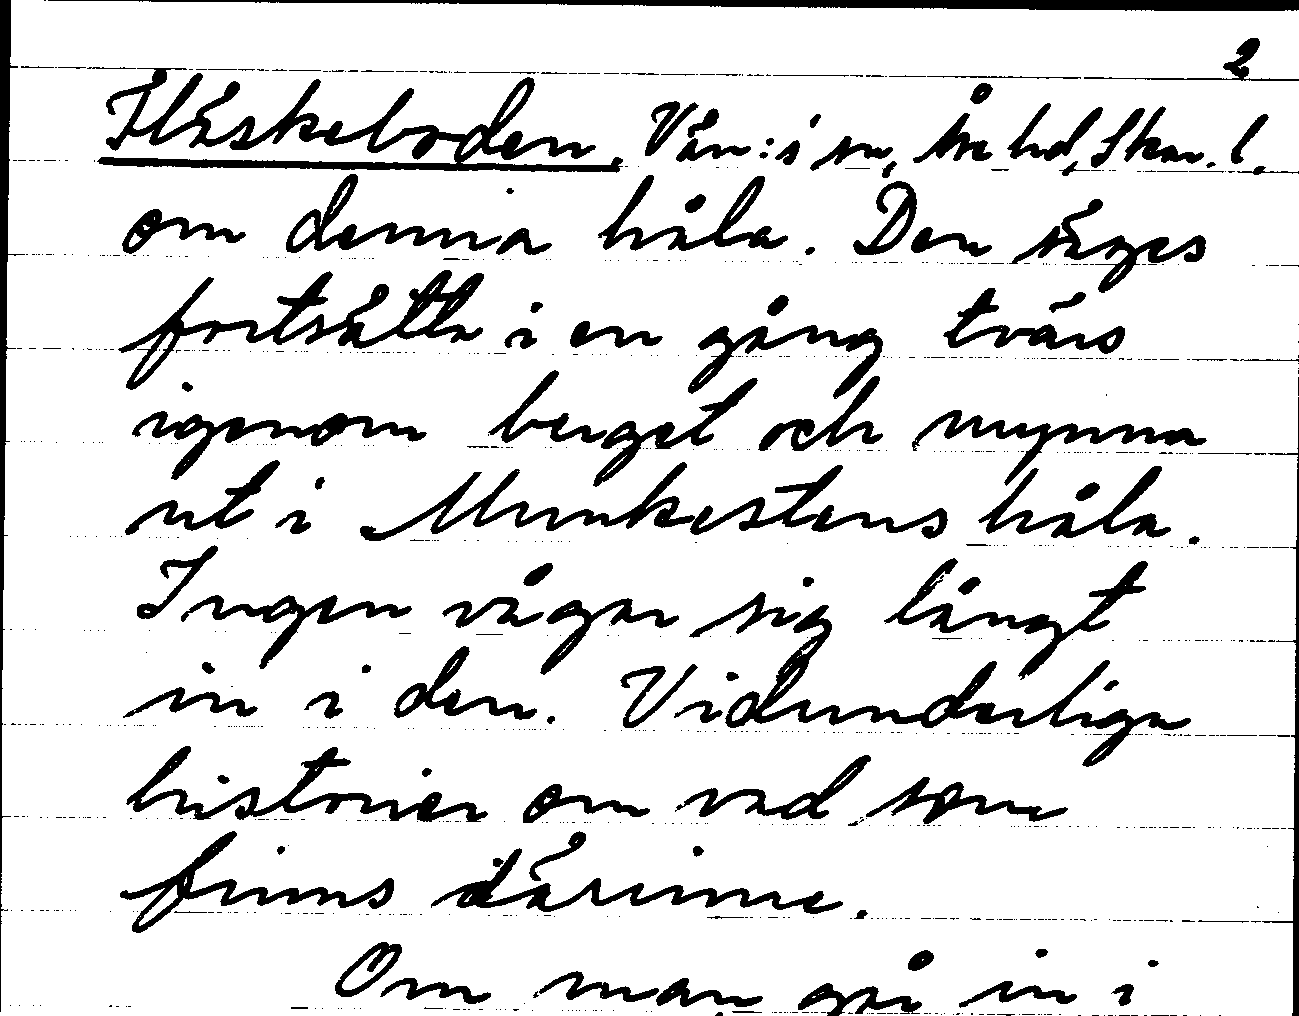 2
Fläskeboden. Vån:s sn, Åse hd, Skar. l.
om denna håla. Den säges
fortsätta i en gång tvärs
igenom berget och mynna
ut i Munkestens håla.
Ingen vågar sig långt
in i den. Vidunderliga
historier om vad som
finns därinne.
Om man går in i